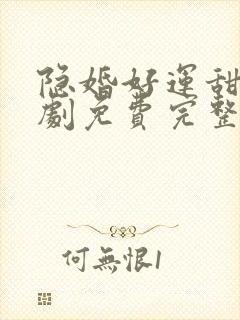 隐婚好運甜
劇免費完整
何無恨1